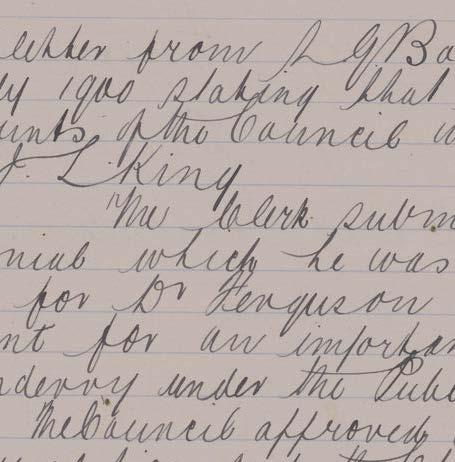 letter from L G Ba
ly 1900 stating that
unts of the Council w
J. L. King
The Clerk subm
nial which he was
for Dr Ferguson
nt for an importan
nderry under the Publ
The Council approved